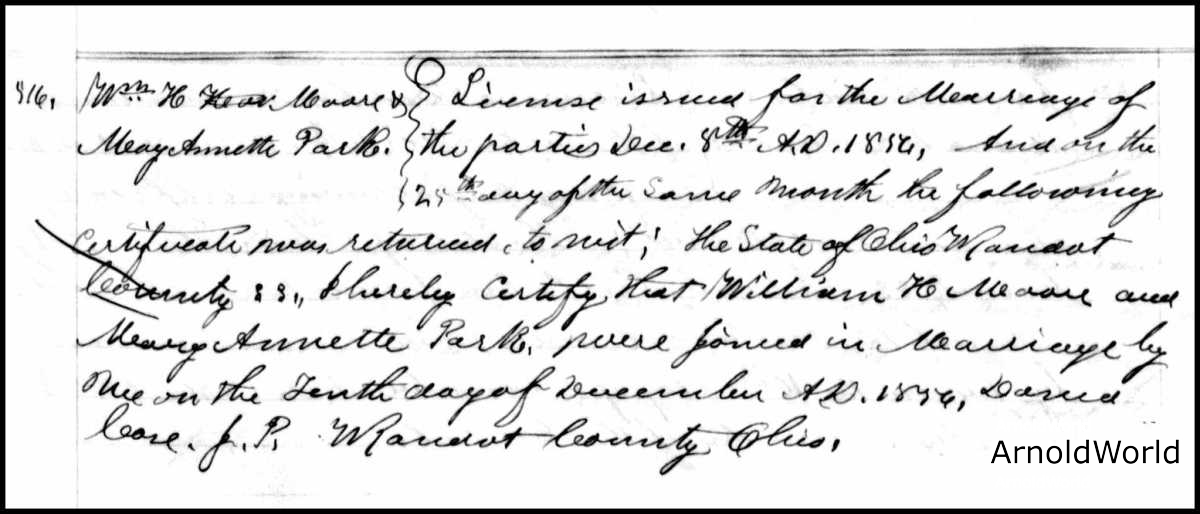 816, Wm H Moore & License issued for the Marriage of
Mary Annette Park. the parties Dec. 8th A.D. 1856, And on the
25th day of the same month he following
Certificate was returned, to wit; The State of Ohio Wyandot
County ss,, I hereby Certify, that William H Moore and
Mary Annette Park, were joined in Marriage by
me on the Tenth day of December A.D. 1856, David
J. P. Wyandot County Ohio.
ArnoldWorld